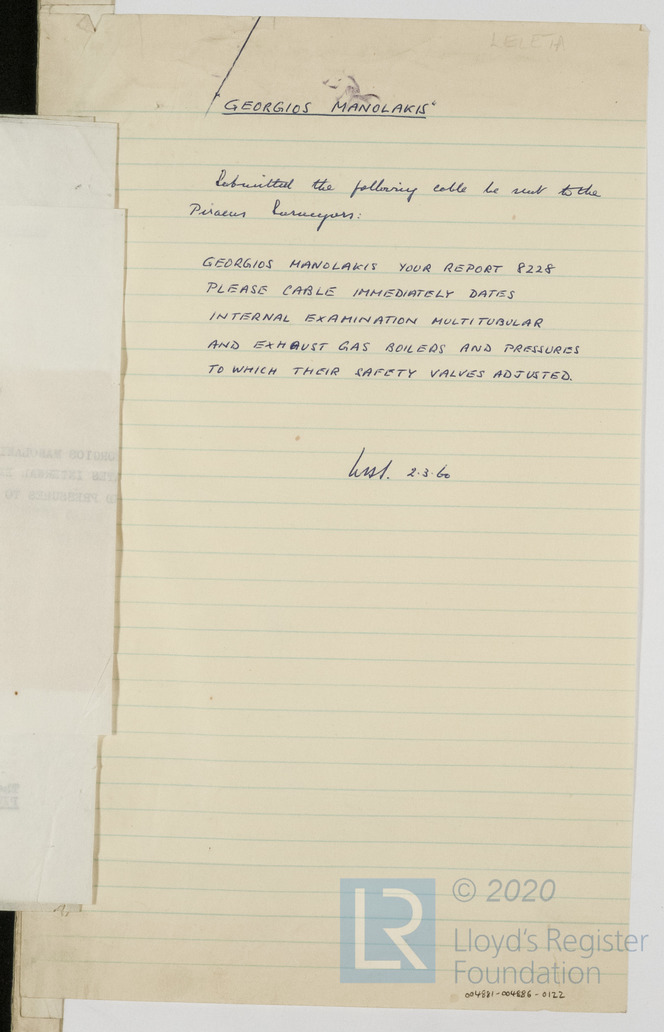 LELETA
"GEORGIOS MANOLAKIS"
Submitted the following cable be sent to the
Piraeus Surveyors:
GEORGIOS MANOLAKIS YOUR REPORT 8228
PLEASE CABLE IMMEDIATELY DATES
INTERNAL EXAMINATION MULTITUBULAR
AND EXHAUST GAS BOILERS AND PRESSURES
TO WHICH THEIR SAFETY VALVES ADJUSTED.
2.3.60
© 2020
LR
Lloyd's Register
Foundation
004881-004886-0122